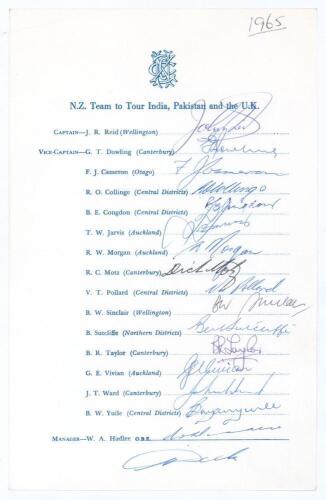 1965
N.Z. Team to Tour India, Pakistan and the U.K.
CAPTAIN—J. R. Reid (Wellington)
VICE-CAPTAIN—G. T. Dowling (Canterbury)
F. J. Cameron (Otago) F J Cameron
R. O. Collinge (Central Districts) R O Collinge
B. E. Congdon (Central Districts) B E Congdon
T. W. Jarvis (Auckland)
R. W. Morgan (Auckland) R Morgan
R. C. Motz (Canterbury) Dick Motz
V. T. Pollard (Central Districts) V Pollard
B. W. Sinclair (Wellington) B W Sinclair
B. Sutcliffe (Northern Districts) Bert Sutcliffe
B. R. Taylor (Canterbury) B R Taylor
G. E. Vivian (Auckland) G E Vivian
J. T. Ward (Canterbury) John Ward
B. W. Yuile (Central Districts) Bryan Yuile
MANAGER—W. A. Hadlee O.B.E.